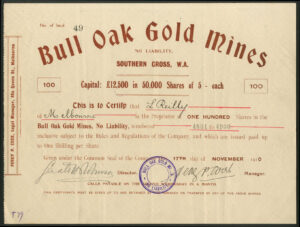 No. of Scrip 49
Bull Oak Gold Mines
NO LIABILITY,
SOUTHERN CROSS, W.A.
100 Capital: £12,500 in 50,000 Shares of 5/- each 100
This is to Certify that
of Melbourne is the Proprietor of ONE HUNDRED Shares in the
Bull Oak Gold Mines, No Liability, numbered
inclusive subject to the Rules and Regulations of the Company, and which are issued paid up
to One Shilling per Share.
Given under the Common Seal of the Company 17TH day of NOVEMBER
Director. Manager.
CALLS PAYABLE ON THE SECOND WEDNESDAY IN A MONTH
THIS CERTIFICATE MUST BE GIVEN UP TO AND RETAINED BY THE COMPANY ON TRANSFER OF ANY OF THE ABOVE SHARES